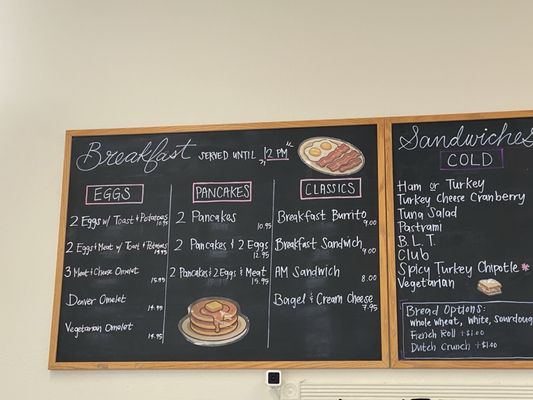 Breakfast SERVED UNTIL "2 PM"
EGGS
2 Eggs w/ Toast & Potatoes 10.95
2 Eggs & Meat w/ Toast & Potatoes 14.95
3 Meat & Cheese Omelet 15.95
Denver Omelet 14.95
Vegetarian Omelet 14.95
PANCAKES
2 Pancakes 10.95
2 Pancakes & 2 Eggs 12.95
2 Pancakes & 2 Eggs & Meat 15.95
CLASSICS
Breakfast Burrito 9.00
Breakfast Sandwich 9.00
AM Sandwich 8.00
Bagel & Cream Cheese 7.95
Sandwiches
COLD
Ham or Turkey
Turkey Cheese Cranberry
Tuna Salad
Pastrami
B.L.T.
Club
Spicy Turkey Chipotle *
Vegetarian
Bread Options:
whole wheat, white, sourdoug
French Roll +$1.00
Dutch Crunch +$1.00